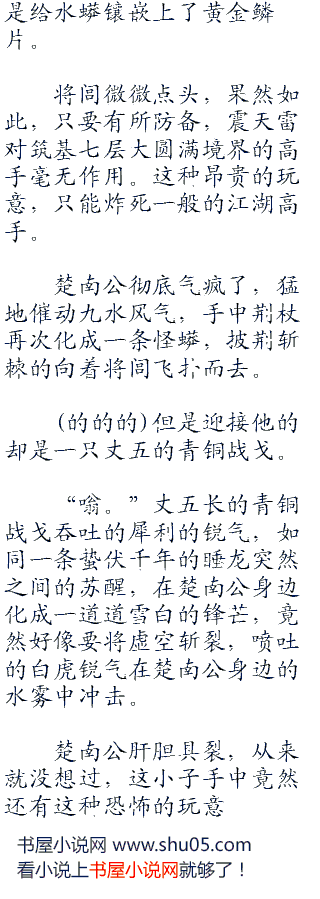 是给水蟒镶嵌上了黄金鳞
片。
将闾微微点头，果然如
此，只要有所防备，震天雷
对筑基七层大圆满境界的高
手毫无作用。这种昂贵的玩
意，只能炸死一般的江湖高
手。
楚南公彻底气疯了，猛
地催动九水风气，手中荆杖
再次化成一条怪蟒，披荆斩
棘的向着将闾飞扑而去。
(的的的)但是迎接他的
却是一只丈五的青铜战戈。
“嗡。”丈五长的青铜
战戈吞吐的犀利的锐气，如
同一条蛰伏千年的睡龙突然
之间的苏醒，在楚南公身边
化成一道道雪白的锋芒，竟
然好像要将虚空斩裂，喷吐
的白虎锐气在楚南公身边的
水雾中冲击。
楚南公肝胆具裂，从来
就没想过，这小子手中竟然
还有这种恐怖的玩意
书屋小说网 www.shu05.com
看小说上书屋小说网就够了！